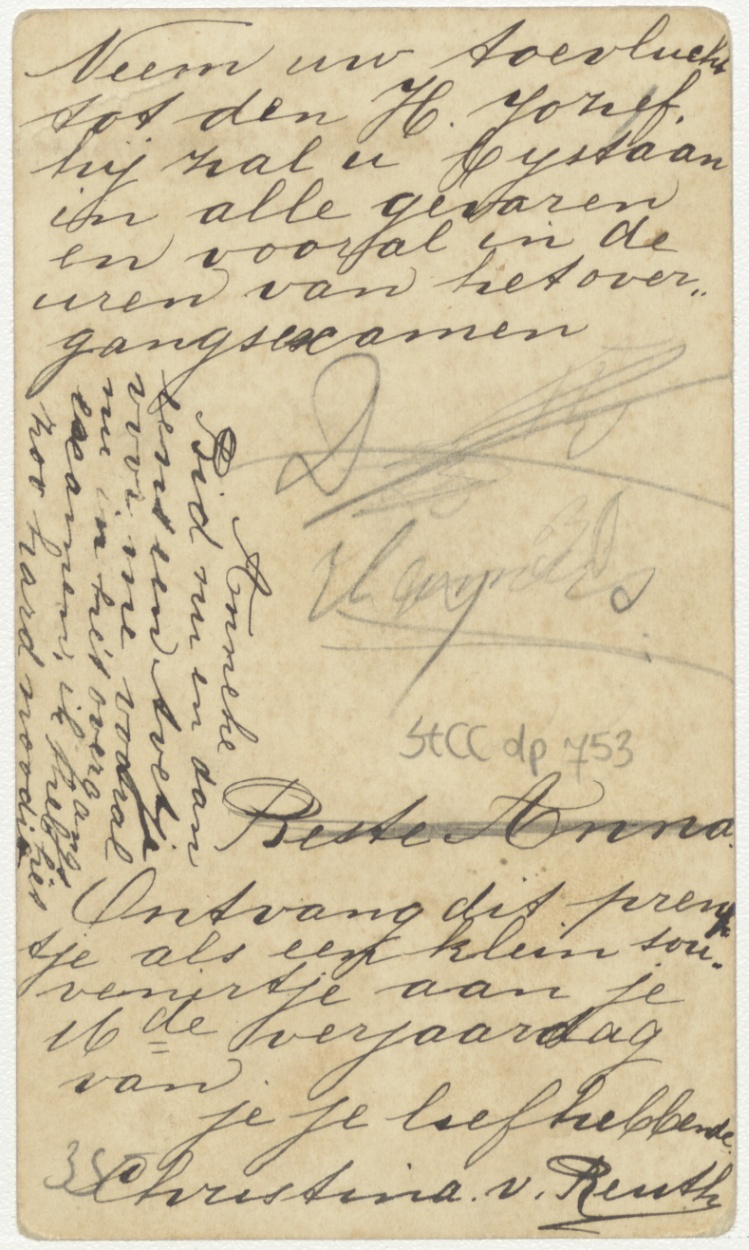 Neem uw toevlucht
tot den H. Jozef.
hij zal u bystaan
in alle gevaren
en vooral in de
uren van het over„
gangsexamen
Anneke
Bid nu en dan
eens een
voor me vooral
nu in het overgangs
examen, ik heb het
zoo hard noodig
D
StCC dp 753
Beste Anna.
Ontvang dit prent
tje als een klein sou„
venirtje aan je
16de verjaardag
van
je je liefhebbende
Christina. v. Reuth